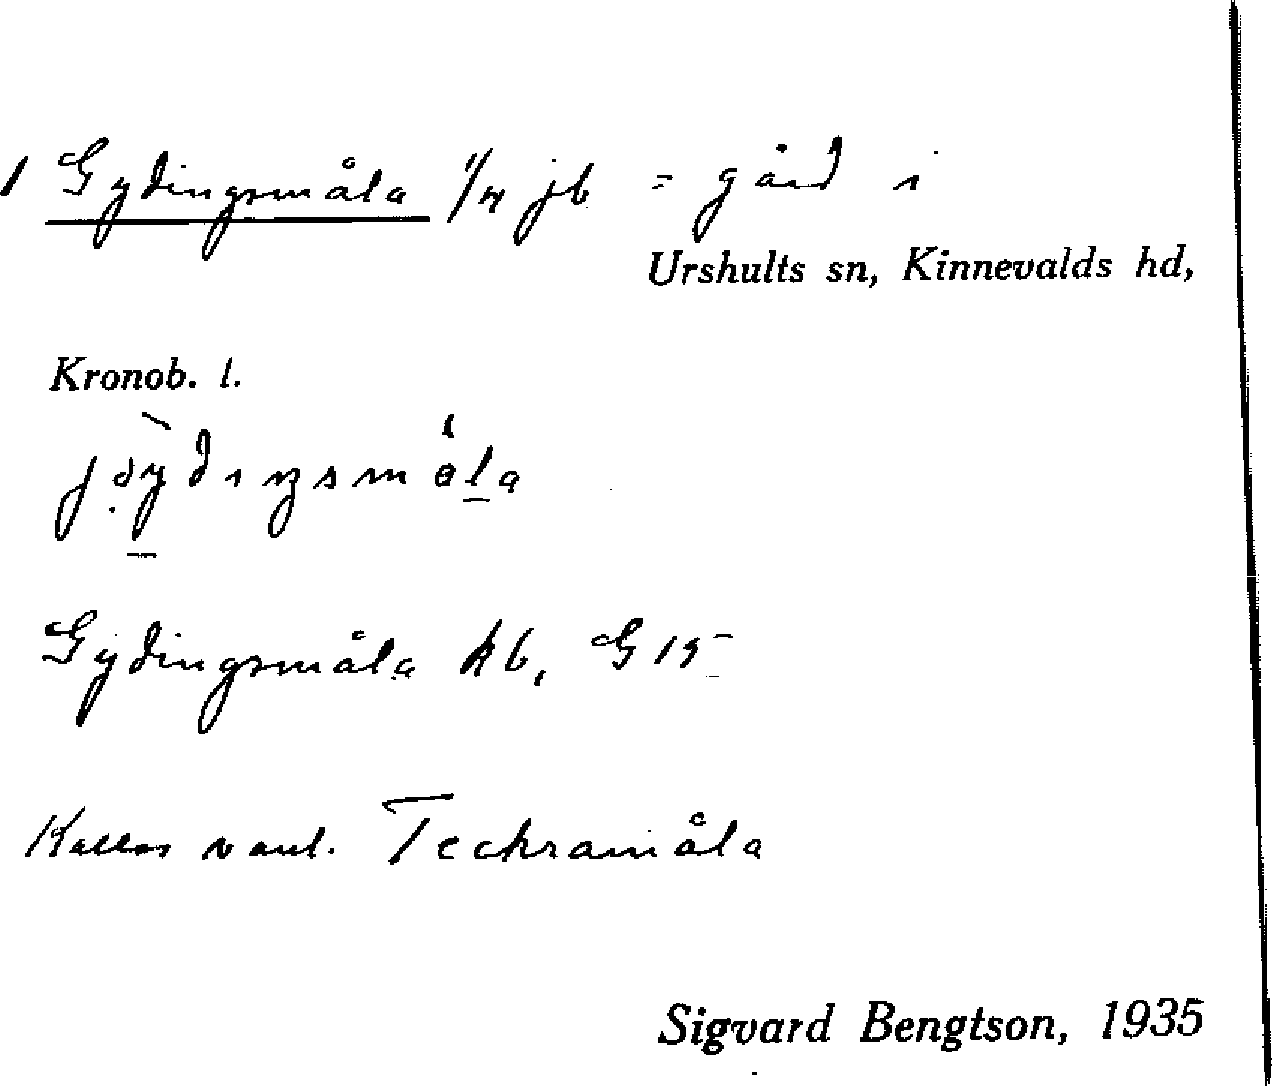 1 Gydingsmåla 1/4 jb = gård i
Urshults sn, Kinnevalds hd,
Kronob. l.
Gydingsmåla kb, G 15
Kallas vanl. Teckramåla
Sigvard Bengtson, 1935